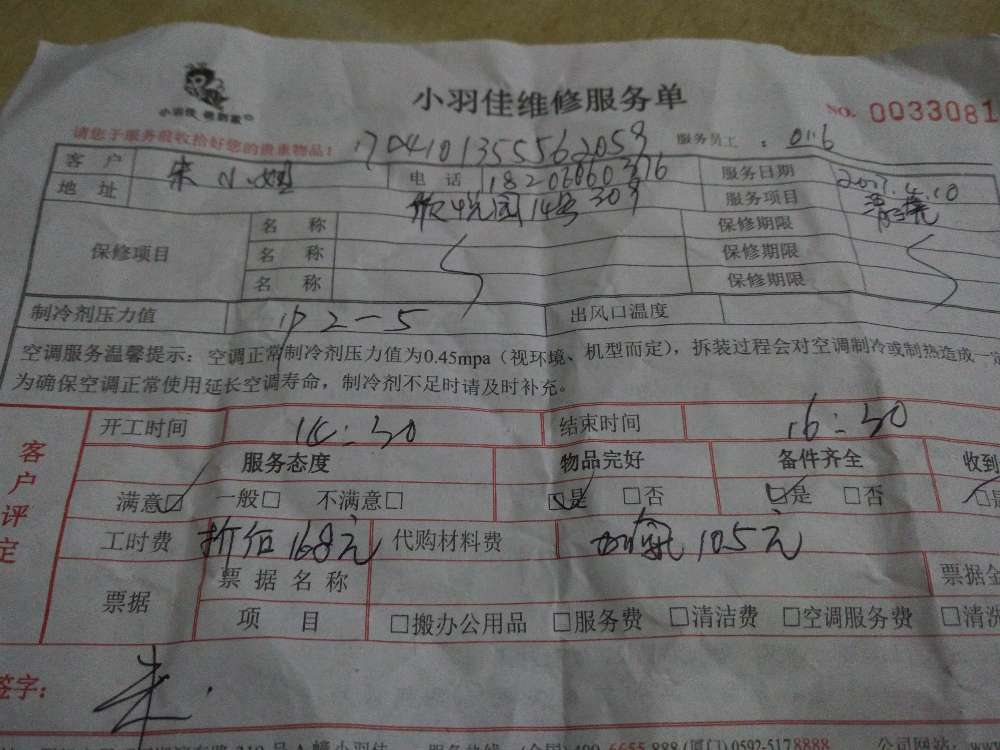 小羽佳维修服务单
NO. 0033081
请您于服务前收拾好您的贵重物品！
17041013555562059 服务员工：0116
客户 朱小姐 电话 18206060376 服务日期 2017.4.10
地址 14号309 服务项目 清洗
保修项目 名称 保修期限
名称 保修期限
名称 保修期限
制冷剂压力值 2-5 出风口温度
空调服务温馨提示：空调正常制冷剂压力值为0.45mpa（视环境、机型而定），拆装过程会对空调制冷或制热造成一定
为确保空调正常使用延长空调寿命，制冷剂不足时请及时补充。
客户评定
开工时间 14:30 结束时间 16:30
服务态度 物品完好 备件齐全 收到
满意☑ 一般□ 不满意□ ☑是 □否 ☑是 □否
工时费 折后168元 代购材料费 105元
票据 票据名称 票据金
项目 □搬办公用品 □服务费 □清洁费 □空调服务费 □清洗
签字： 朱
服务热线 (全国)400-6655888 (厦门)0592-5178888 公司网站